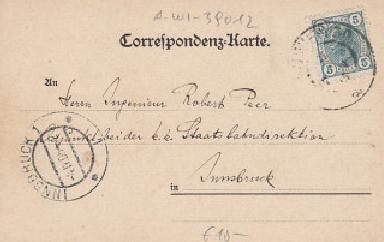 A-WI-39012
Correspondenz-Karte.
5 5
An
Herrn Ingenieur Robert Peer
bei der k.k. Staatsbahndirektion
INNSBRUCK 1
in Innsbruck
€ 10-